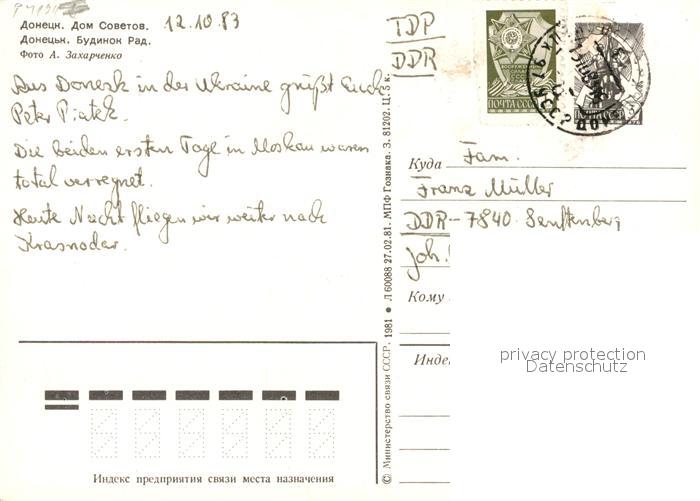 Донецк. Дом Советов. 12.10.83
Донецьк. Будинок Рад.
Фото А. Захарченко
Aus Donezk in der Ukraine grüßt Euch
Peter Piatek.
Die beiden ersten Tage in Moskau waren
total verregnet.
Heute Nacht fliegen wir weiter nach
Krasnodar.
© Министерство связи СССР, 1981 ● Л 60088 27.02.81. МПФ Гознака. З. 81202. Ц. 5 к.
ГДР
DDR
ПОЧТА СССР
Куда Fam.
Franz Müller
DDR-7840 Senftenberg
Joh.
Кому
Индекс предприятия связи места назначения
privacy protection
Datenschutz